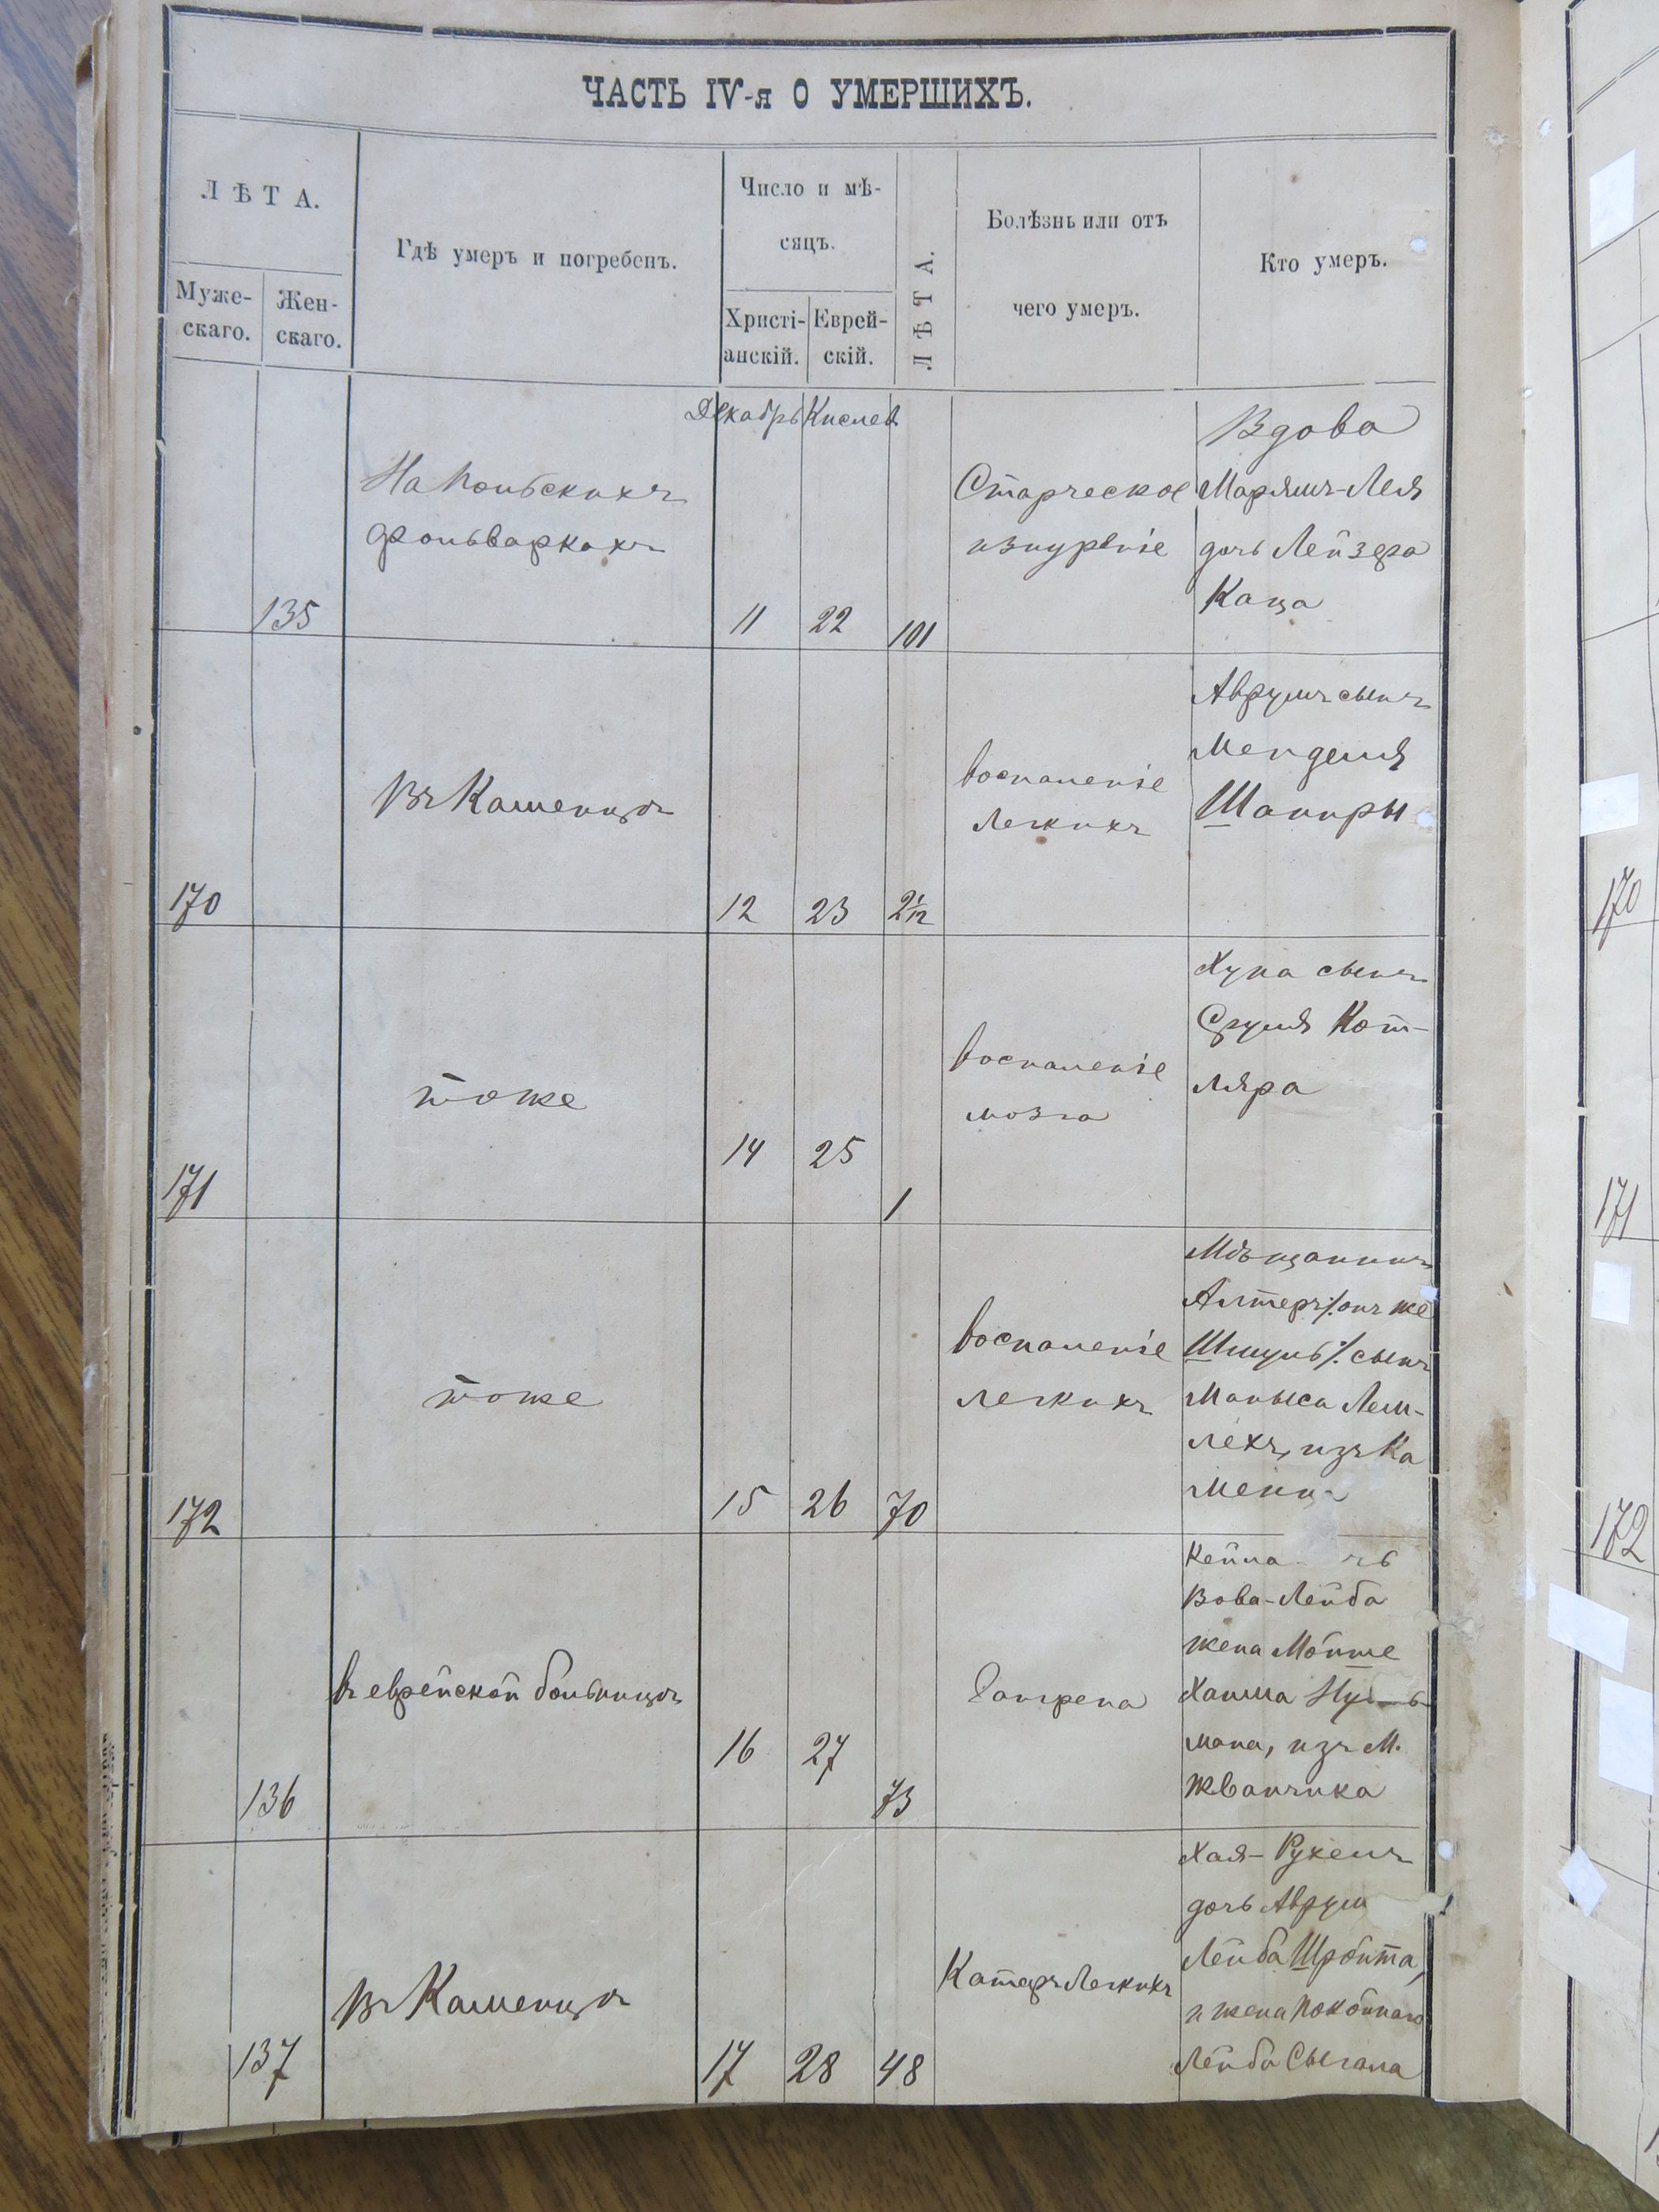 ЧАСТЬ IV-я О УМЕРШИХЪ.
ЛѢТА.
Муже-
скаго.
Жен-
скаго.
Гдѣ умеръ и погребенъ.
Число и мѣ-
сяцъ.
Христі-
анскій.
Еврей-
скій.
ЛѢТА.
Болѣзнь или отъ
чего умеръ.
Кто умеръ.
Декабрь Кислев
135
На Польскихъ
фольваркахъ
11
22
101
Старческое
изнуреніе
Вдова
Марямъ-Лея
дочь Лейзера
Каца
170
Въ Каменцѣ
12
23
2 1/12
Воспаленіе
Легкихъ
Аврумъ сынъ
Менделя
Шапиры
171
тоже
14
25
1
Воспаленіе
мозга
Хуна сынъ
Сруля Кот-
ляра
172
тоже
15
26
70
Воспаленіе
легкихъ
Мѣщанинъ
Алтеръ ٪ онъ же
Шмуль ٪ сынъ
Маныса Лем-
лехъ, изъ Ка
мен
136
въ еврейской больницѣ
16
27
73
Гангрена
Кейла чь
Вова-Лейба
жена Мойше
Хаима
мана, изъ М.
Жванчика
137
Въ Каменцѣ
17
28
48
Катаръ Легкихъ
Хая-Рухель
дочь Аврум
Лейба Шройта,
и жена Покойнаго
Лейба Сыгала
170
171
172